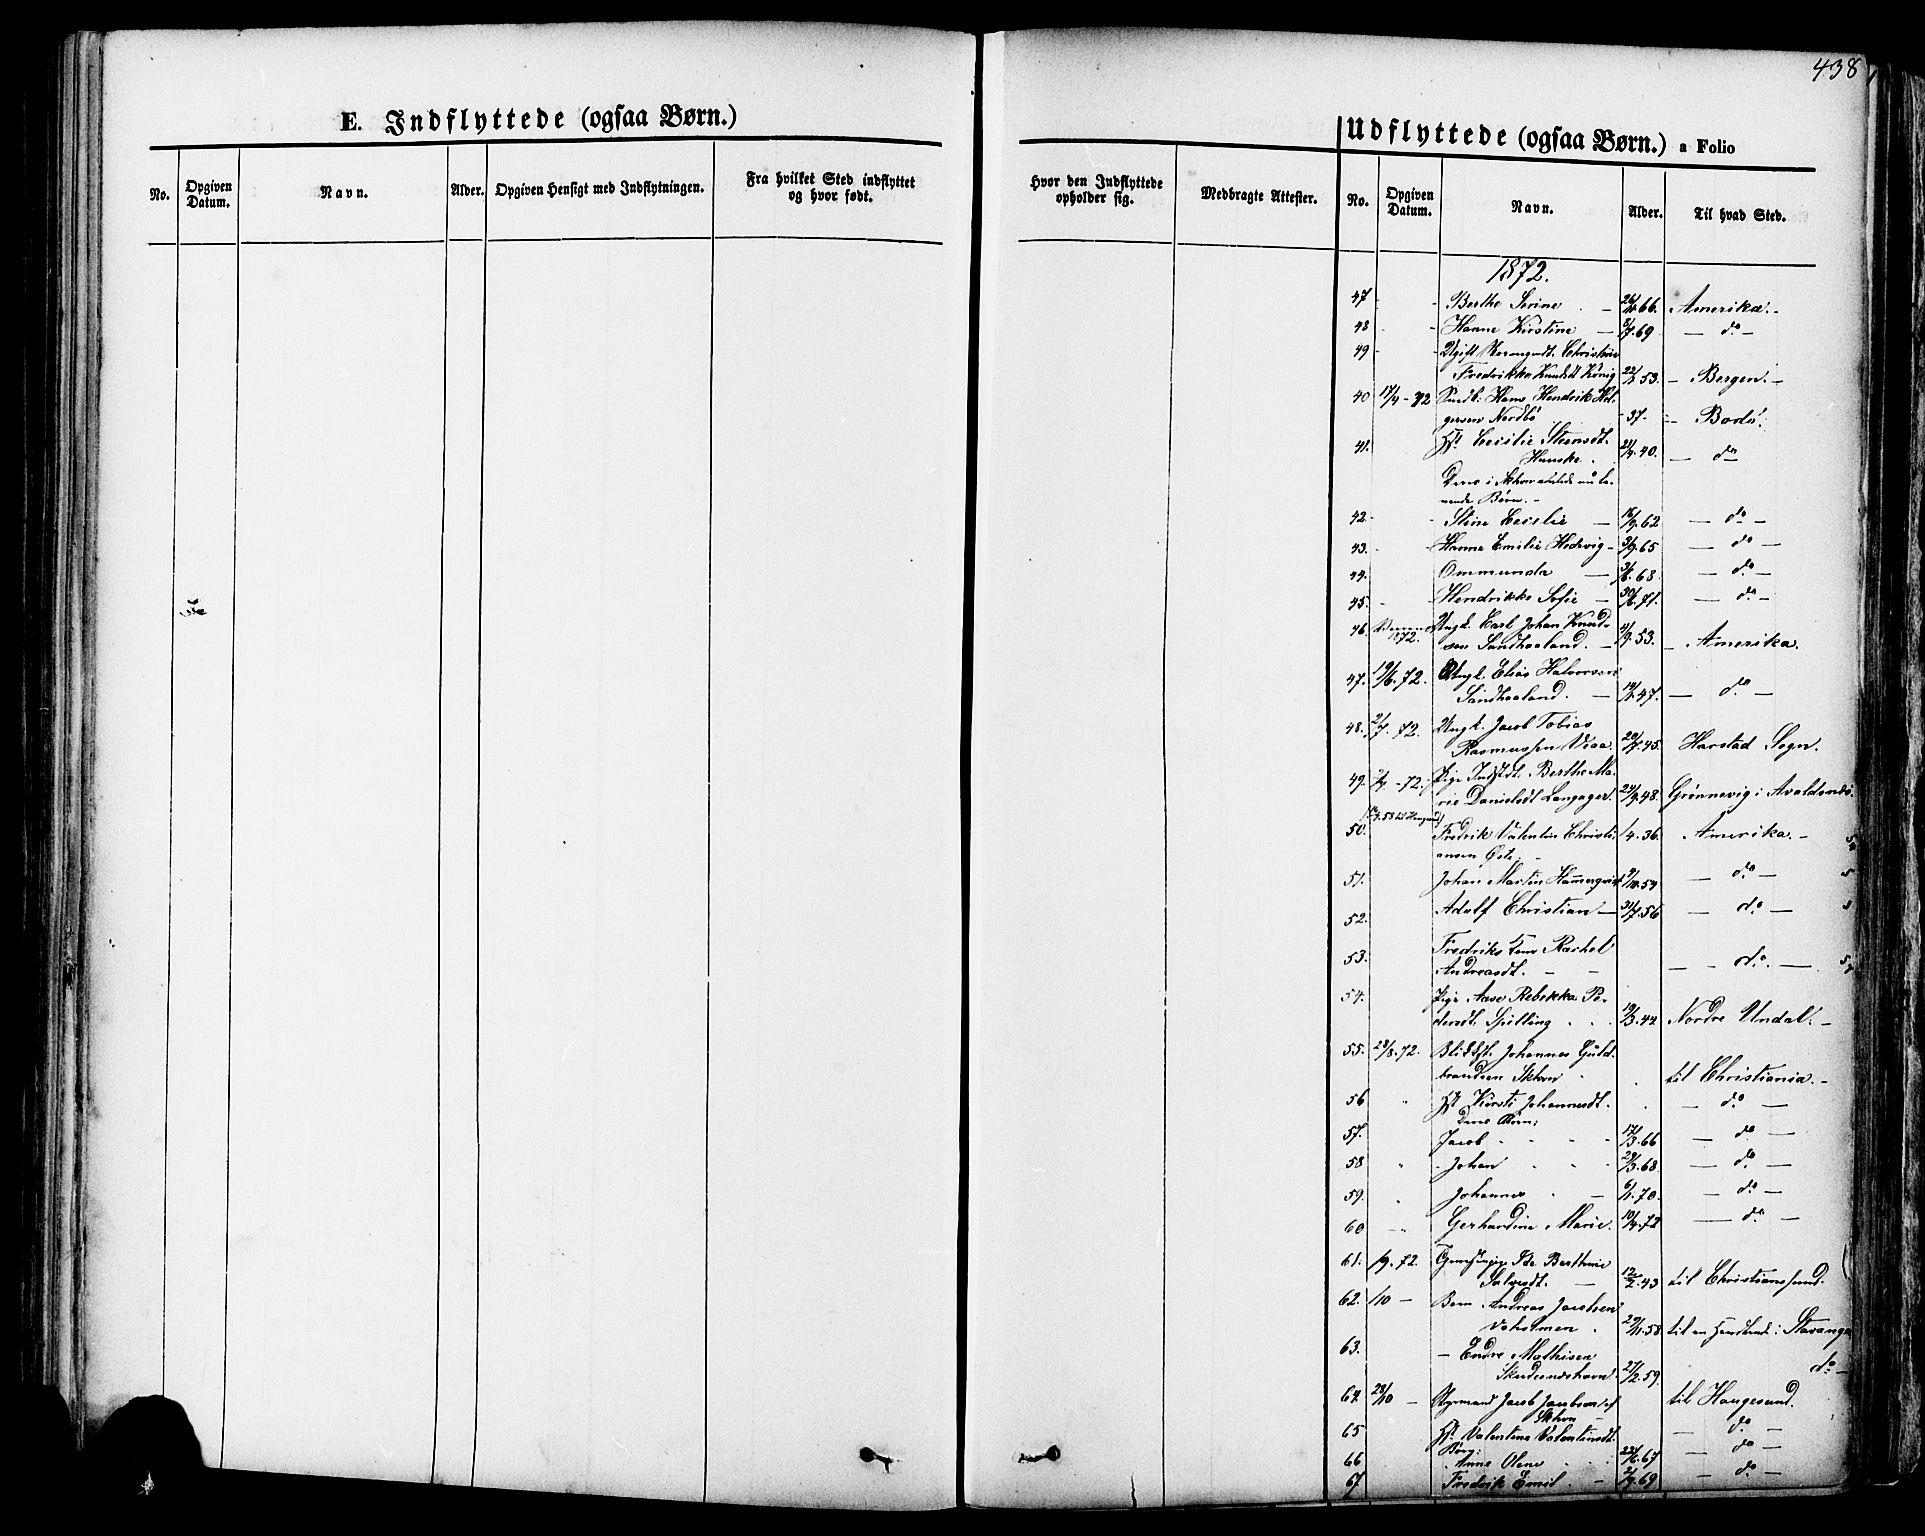 438
E. Indflyttede (ogsaa Børn.)
No. Opgiven Datum. Navn. Alder. Opgiven Hensigt med Indflytningen. Fra hvilket Sted indflyttet og hvor født.
Hvor den Indflyttede opholder sig. Medbragte Attester.
Udflyttede (ogsaa Børn.) a Folio
No. Opgiven Datum. Navn. Alder. Til hvad Sted.
1872.
47 - - Berthe Serine - 66. Amerika. -
48 - - Hanne Kirstine - 69 - do -
49 - - Ugift Christine
Fredrikke Knudsdt König 53. - Bergen. -
40 17/4 - 72 Hans Hendrik Hel-
gersen Nordbö - 37 - - Bodö.
41. Cecilie Steensdt.
Hauske 21/4. 40. - do -
Deres i Skhavn nu le-
vende Børn. -
42 - - Stine Cecilie - 16/9. 62 - do -
43. - - Hanne Emilie Hedevig - 3/9. 65 - do -
44. Ommunda - 68. - do -
45. - - Hendrikke Sofie - 71. - do -
46. 1872. Ungk. Carl Johan Knud-
sen Sandhaaland. - 4/9. 53. - Amerika.
47. 19/6. 72. Ungk. Elias Halvorsen
Sandhaaland. - 47. - do -
48. 2/7. 72. Ungk. Jacob Tobias
Rasmussen Viaa 20/7. 45. Harstad Sogn.
49. - 72. Pige Berthe Ma-
rie Danielsdt Langager. 24/9. 48. Grönnevig i Avaldsnes.
50. Fredrik Valentin Christi-
ansen 4. 36. Amerika. -
51. Johan Martin 9/10. 59 - do -
52. Adolf Christian - 31/7. 56 - do -
53. Fredriks Rachel
Andreasdt. - - - do. -
54. Pige Aase Rebekka Pe-
dersdt. Spilling 19/3. 44 Nordre Undal. -
55. 28/8. 72. Johannes Guld-
brandsen Skhavn til Christiania. -
56 " Kirsti Johannesdt. - do -
Deres Børn:
57. Jacob 17/3. 66 - do -
58 " - Johan 28/3. 68. - do -
59. " Johannes - 6/1. 70. - do -
60 Gerhardine Marie. 10/4. 72 - do -
61. /9. 72. Ide Berthine
Salvesdt. - 12/2. 43 til Christianssund.
62. /10 - Barn Andreas Jacobsen
Vaholmen 29/11. 58. til en i Stavanger
63. - Endre Mathisen
Skudesnæshavn 27/2. 59. do -
64 28/10 - Styrmand Jacob Jacobsen af
Skhavn - til Haugesund.
65 Valentine Valentinsdt. - do -
Børn:
66 Anne Olene 22/6. 67 - do -
67 Fredrik Emil. - 2/9. 69 - do -